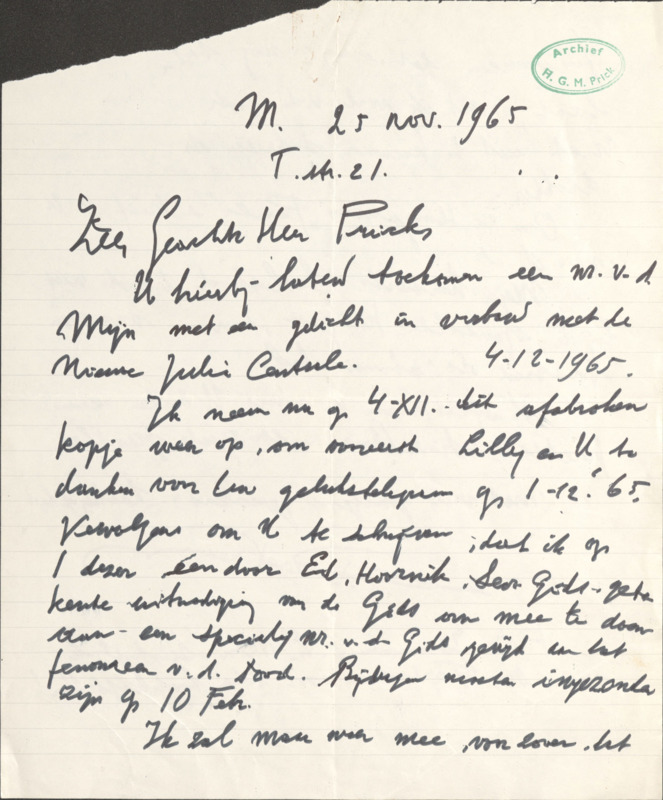 Archief
H. G. M. Prick
M. 25 nov. 1965
T. str. 21.
Zeer Geachte Heer Pricks
U hierbij laten toekomen een nr. v. d.
Mijn met een gedicht in verband met de
nieuwe Julia Centrale. 4-12-1965.
Ik neem nu op 4-XII. dit afgebroken
kopje weer op, om vooreerst Lilly en U te
danken voor Uw gelukstelegram op 1-12-'65.
Vervolgens om U te schrijven, dat ik op
1 dezer een door Ed. Hoornik, Secr. Gids-
uitnodiging van de Gids om mee te doen
aan een speciaal nr. v. de Gids gewijd aan het
fenomeen v. d. dood. Bijdragen moeten ingezonden
zijn op 10 Febr.
Ik zal maar weer mee, voor zover het